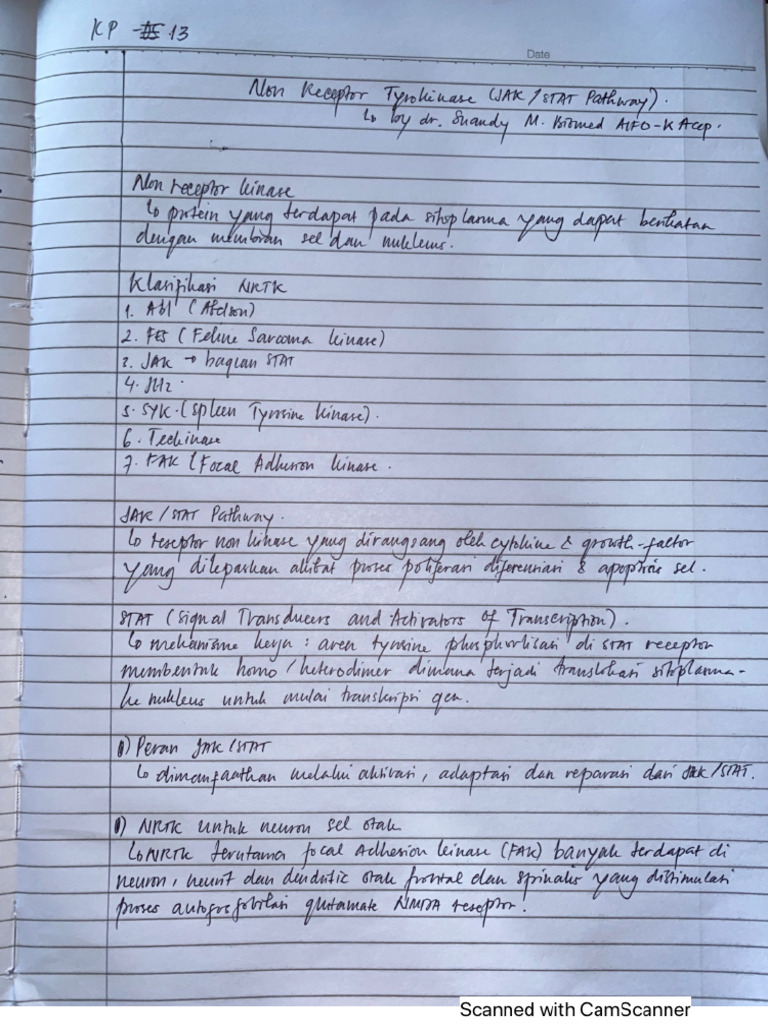 KP 13
Date
Non Receptor Tyrokinase (JAK/STAT Pathway).
↳ by dr. Suandy M. Biomed AIFO-K Acep.
Non receptor kinase
↳ protein yang terdapat pada sitoplasma yang dapat berikatan
dengan membran sel dan nukleus.
Klasifikasi NRTK
1. Abl (Abelson)
2. FES (Feline Sarcoma kinase)
3. JAK → bagian STAT
4.
5. SYK. (Spleen Tyrosine kinase).
6. Teckinase
7. FAK (Focal Adhesion kinase.
JAK/STAT Pathway.
↳ reseptor non kinase yang dirangsang oleh cytokine & growth-factor
yang dilepaskan akibat proses poliferasi diferensiasi & apoptosis sel.
STAT (Signal Transducers and Activators of Transcription).
↳ mekanisme kerja : area tyrosine phosphorlisasi di STAT receptor
membentuk homo/heterodimer dimana terjadi translokasi sitoplasma-
ke nukleus untuk mulai transkripsi gen.
Peran JAK/STAT
↳ dimanfaatkan melalui aktivasi, adaptasi dan reparasi dari JAK/STAT.
NRTK untuk neuron sel otak
↳ NRTK terutama focal Adhesion kinase (FAK) banyak terdapat di
neuron, neurit dan dendritic otak frontal dan spinalis yang distimulasi
proses glutamate NMDA reseptor.
Scanned with CamScanner